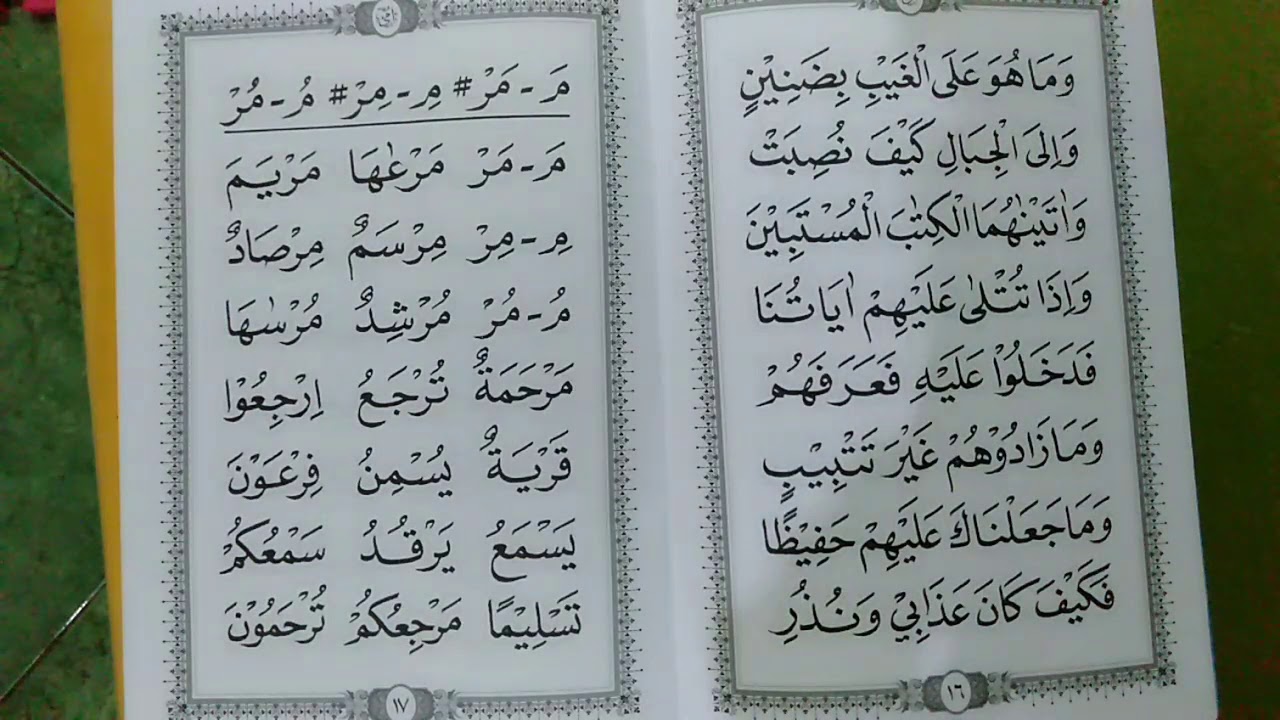 وَمَا هُوَ عَلَى الْغَيْبِ بِضَنِيْنٍ
وَاِلَى الْجِبَالِ كَيْفَ نُصِبَتْ
وَاٰتَيْنٰهُمَا الْكِتٰبَ الْمُسْتَبِيْنَ
وَاِذَا تُتْلٰى عَلَيْهِمْ اٰيَاتُنَا
فَدَخَلُوْا عَلَيْهِ فَعَرَفَهُمْ
وَمَا زَادُوْهُمْ غَيْرَ تَتْبِيْبٍ
وَمَا جَعَلْنَاكَ عَلَيْهِمْ حَفِيْظًا
فَكَيْفَ كَانَ عَذَابِيْ وَنُذُرِ
١٦
مَ - مَرْ # مِ - مِرْ # مُ - مُرْ
مَ - مَرْ مَرْعٰهَا مَرْيَمَ
مِ - مِرْ مِرْسَمٌ مِرْصَادٌ
مُ - مُرْ مُرْشِدٌ مُرْسٰهَا
مَرْحَمَةٌ تُرْجَعُ اِرْجِعُوْا
قَرْيَةٌ يُسْمِنُ فِرْعَوْنَ
يَسْمَعُ يَرْقُدُ سَمْعُكُمْ
تَسْلِيْمًا مَرْجِعُكُمْ تُرْحَمُوْنَ
١٧